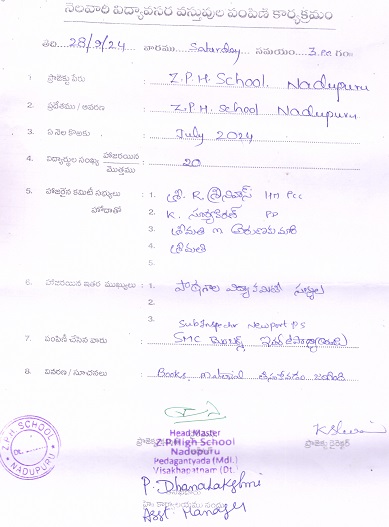 నెలవారీ విద్యావసర వస్తువుల పంపిణీ కార్యక్రమం
తేది 28/9/24 వారము Saturday సమయం 3.00 గం
1 ప్రాజెక్టు పేరు Z.P.H. School. Nadupuru
2. ప్రదేశము / ఆవరణ Z.P.H. School Nadupuru
3. ఏ నెల కొరకు July 2024
4. విద్యార్థుల సంఖ్య హాజరయిన మొత్తము 20
5 హాజరైన కమిటీ సభ్యులు హోదాతో : 1. శ్రీ R. శ్రీనివాస్ HM
2. K.
3. శ్రీమతి m అరుణకుమారి
4. శ్రీమతి
5.
6. హాజరయిన ఇతర ముఖ్యులు : 1. పాఠశాల విద్యా కమిటీ సభ్యులు
2.
3.
Sub Inspector Newport PS
7. పంపిణీ చేసిన వారు SMC
8. వివరణ / సూచనలు Books, material
Head Master
Z.P.High School
Nadupuru
Pedagantyada (Mdl.)
Visakhapatnam (Dt.
ప్రాజెక్టు డైరెక్టర్
P. Dhanalakshmi
Asst Manager
Z.P.H SCHOOL
NADUPURU